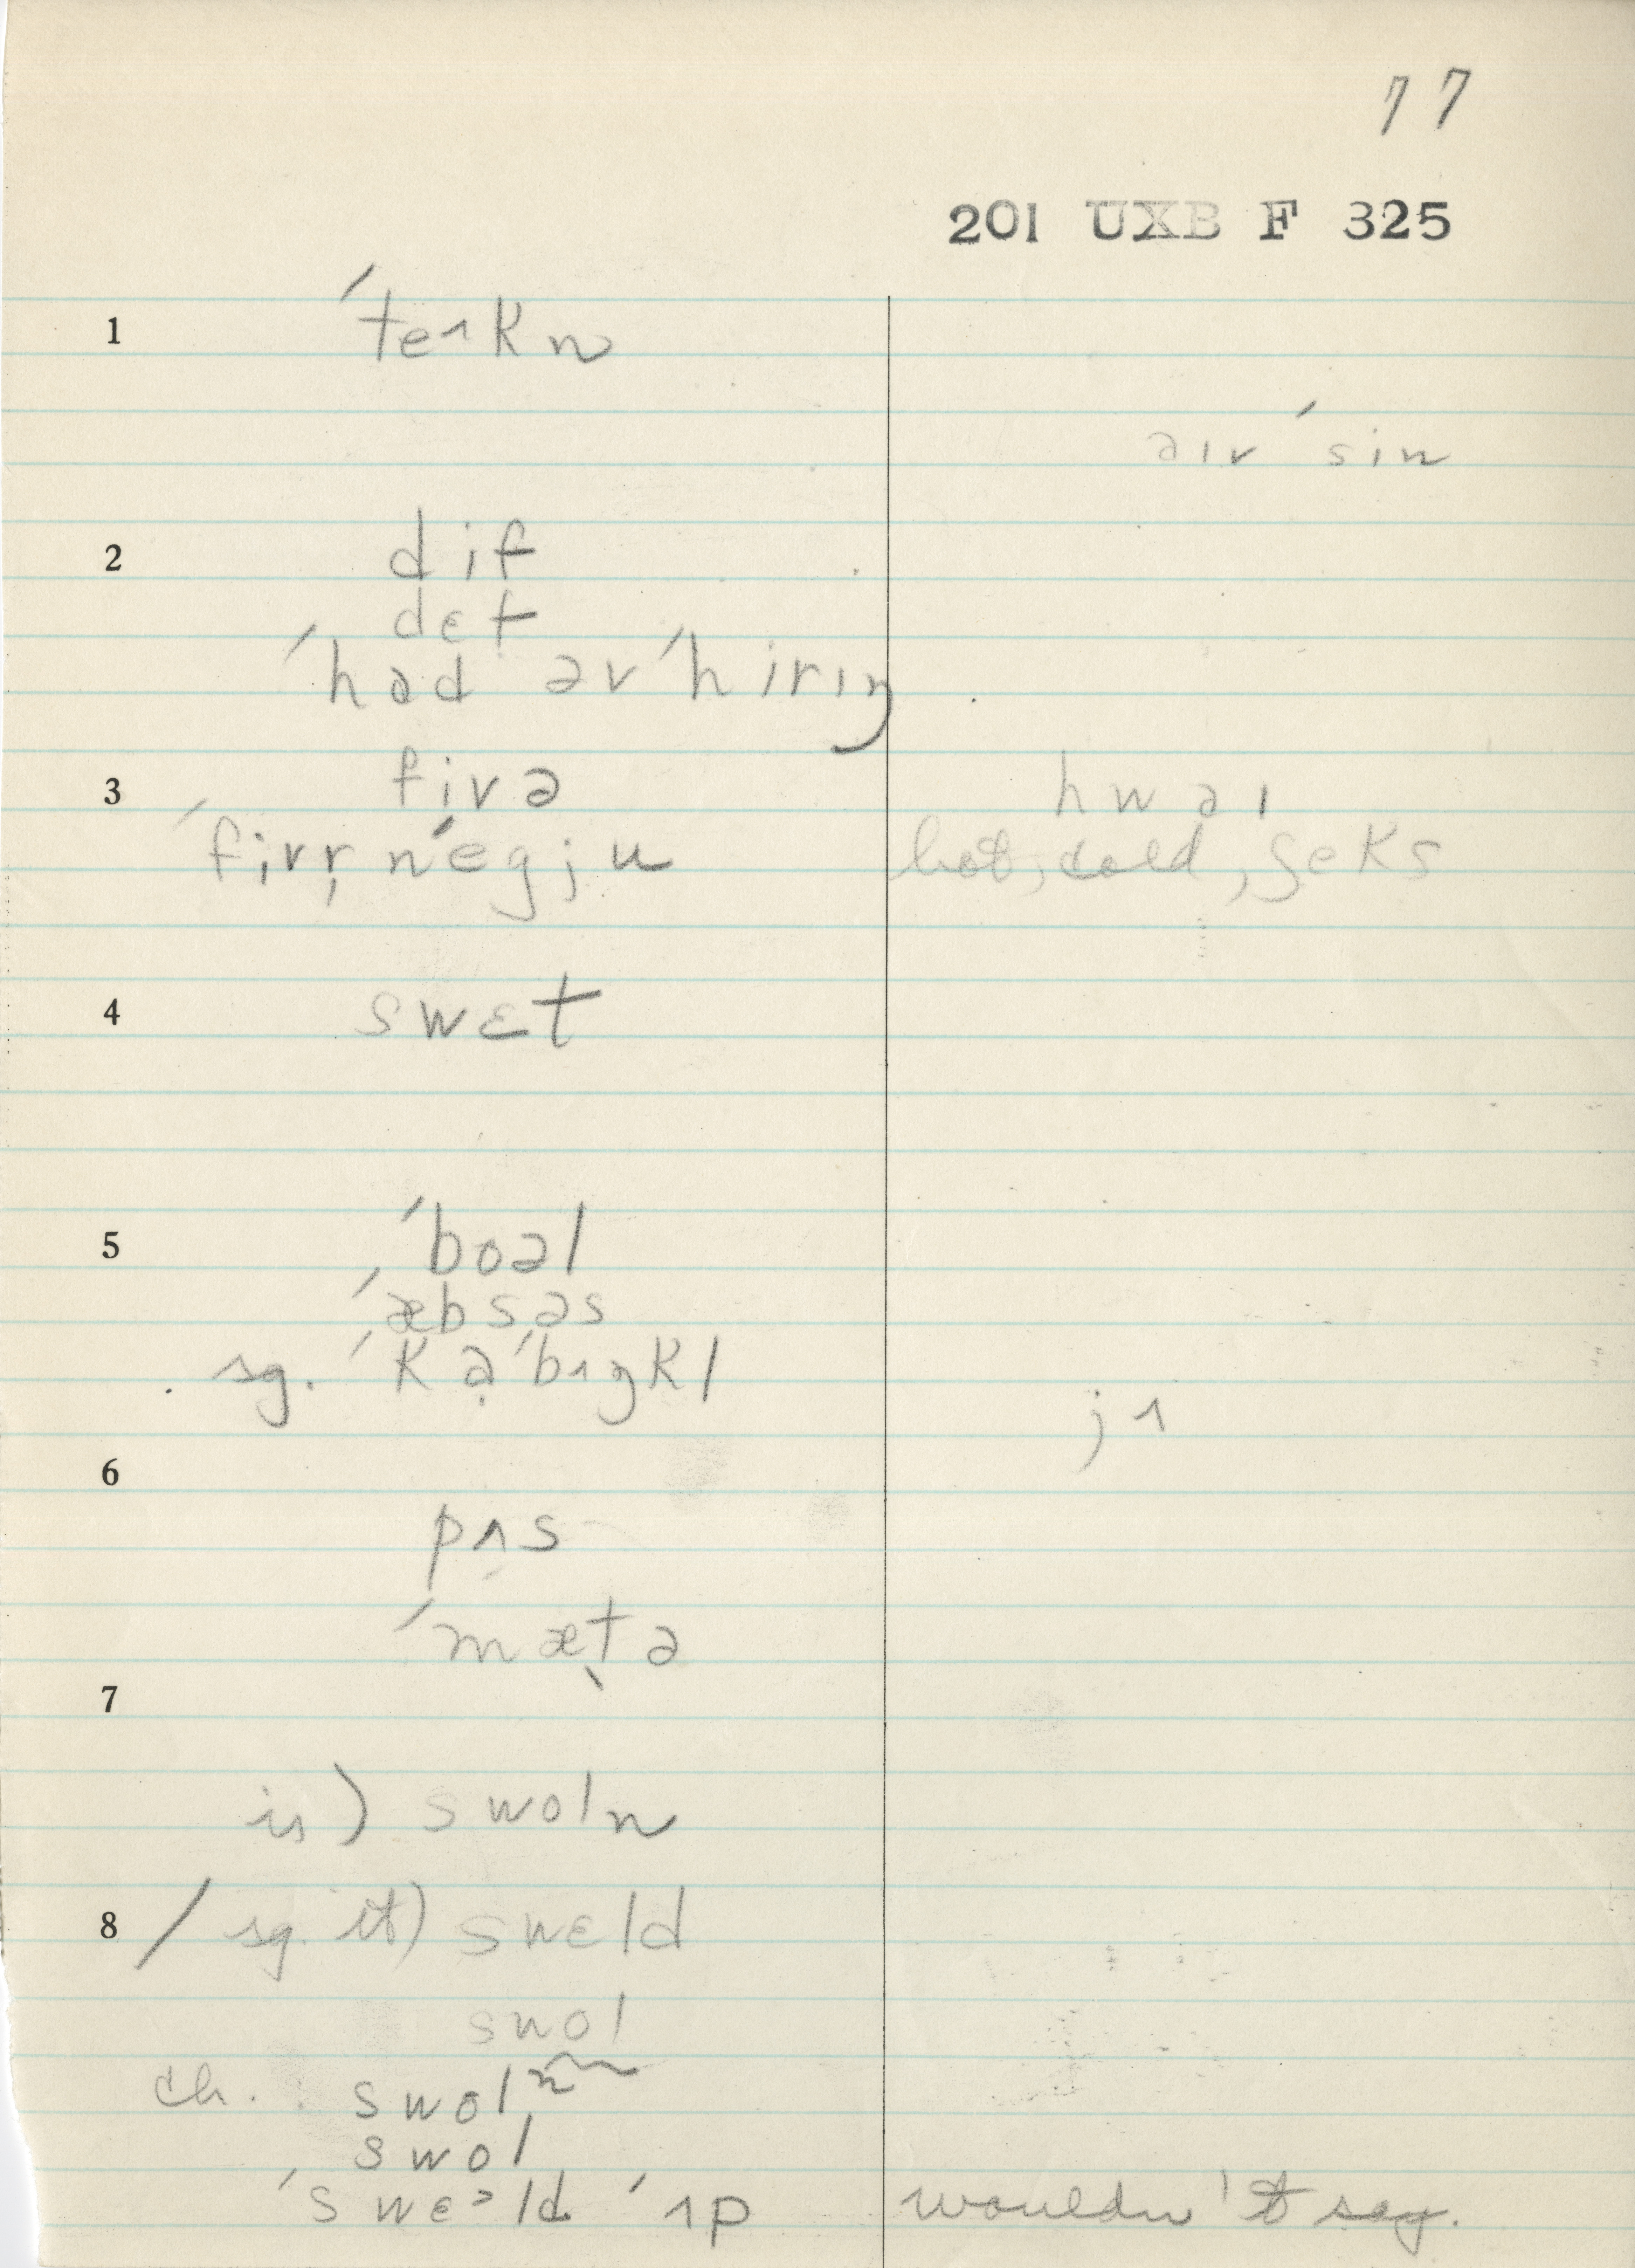 77
201 UXB F 325
1 ˈteɪkn
əɪv ˈsin
2 dif
dɛf
ˈhad əv ˈhirɪŋ
3 fivə
hwəɪ
ˈfivr̩ n ˈegju
hot, cold, ʃeks
4 swɛt
5 ˈboəl
ˈæbsəs
sg. ˈkạˈbʌŋkl
jʌ
6
pʌs
ˈmæt̬ə
7
is) swoln
8 / sg. it) swɛld
swol
ch. swoln
swol
ˈswɛᵊld ˈʌp wouldn't say.